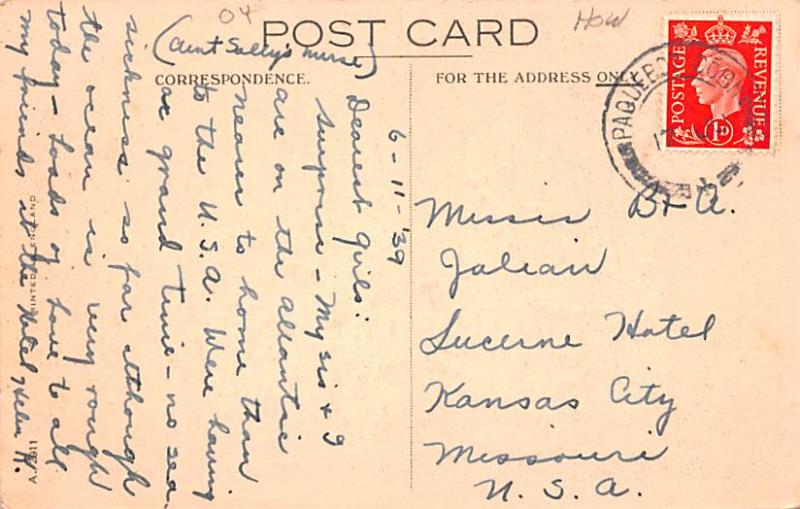 04
How
POST CARD
(Aunt Sally's nurse)
CORRESPONDENCE.
FOR THE ADDRESS ONLY
6-11-'39
Dearest girls:
Surprise - My sis + I
are on the Atlantic
nearer to home than
to the U.S.A. Were having
a grand time - no sea
sickness so far although
the ocean is very rough
today - Loads of love to all
my friends at the Hotel Helen K.
POSTAGE
REVENUE
1D
PAQUEBOT
Misses B + A.
Julian
Lucerne Hotel
Kansas City
Missouri
U. S. A.
PRINTED ENGLAND